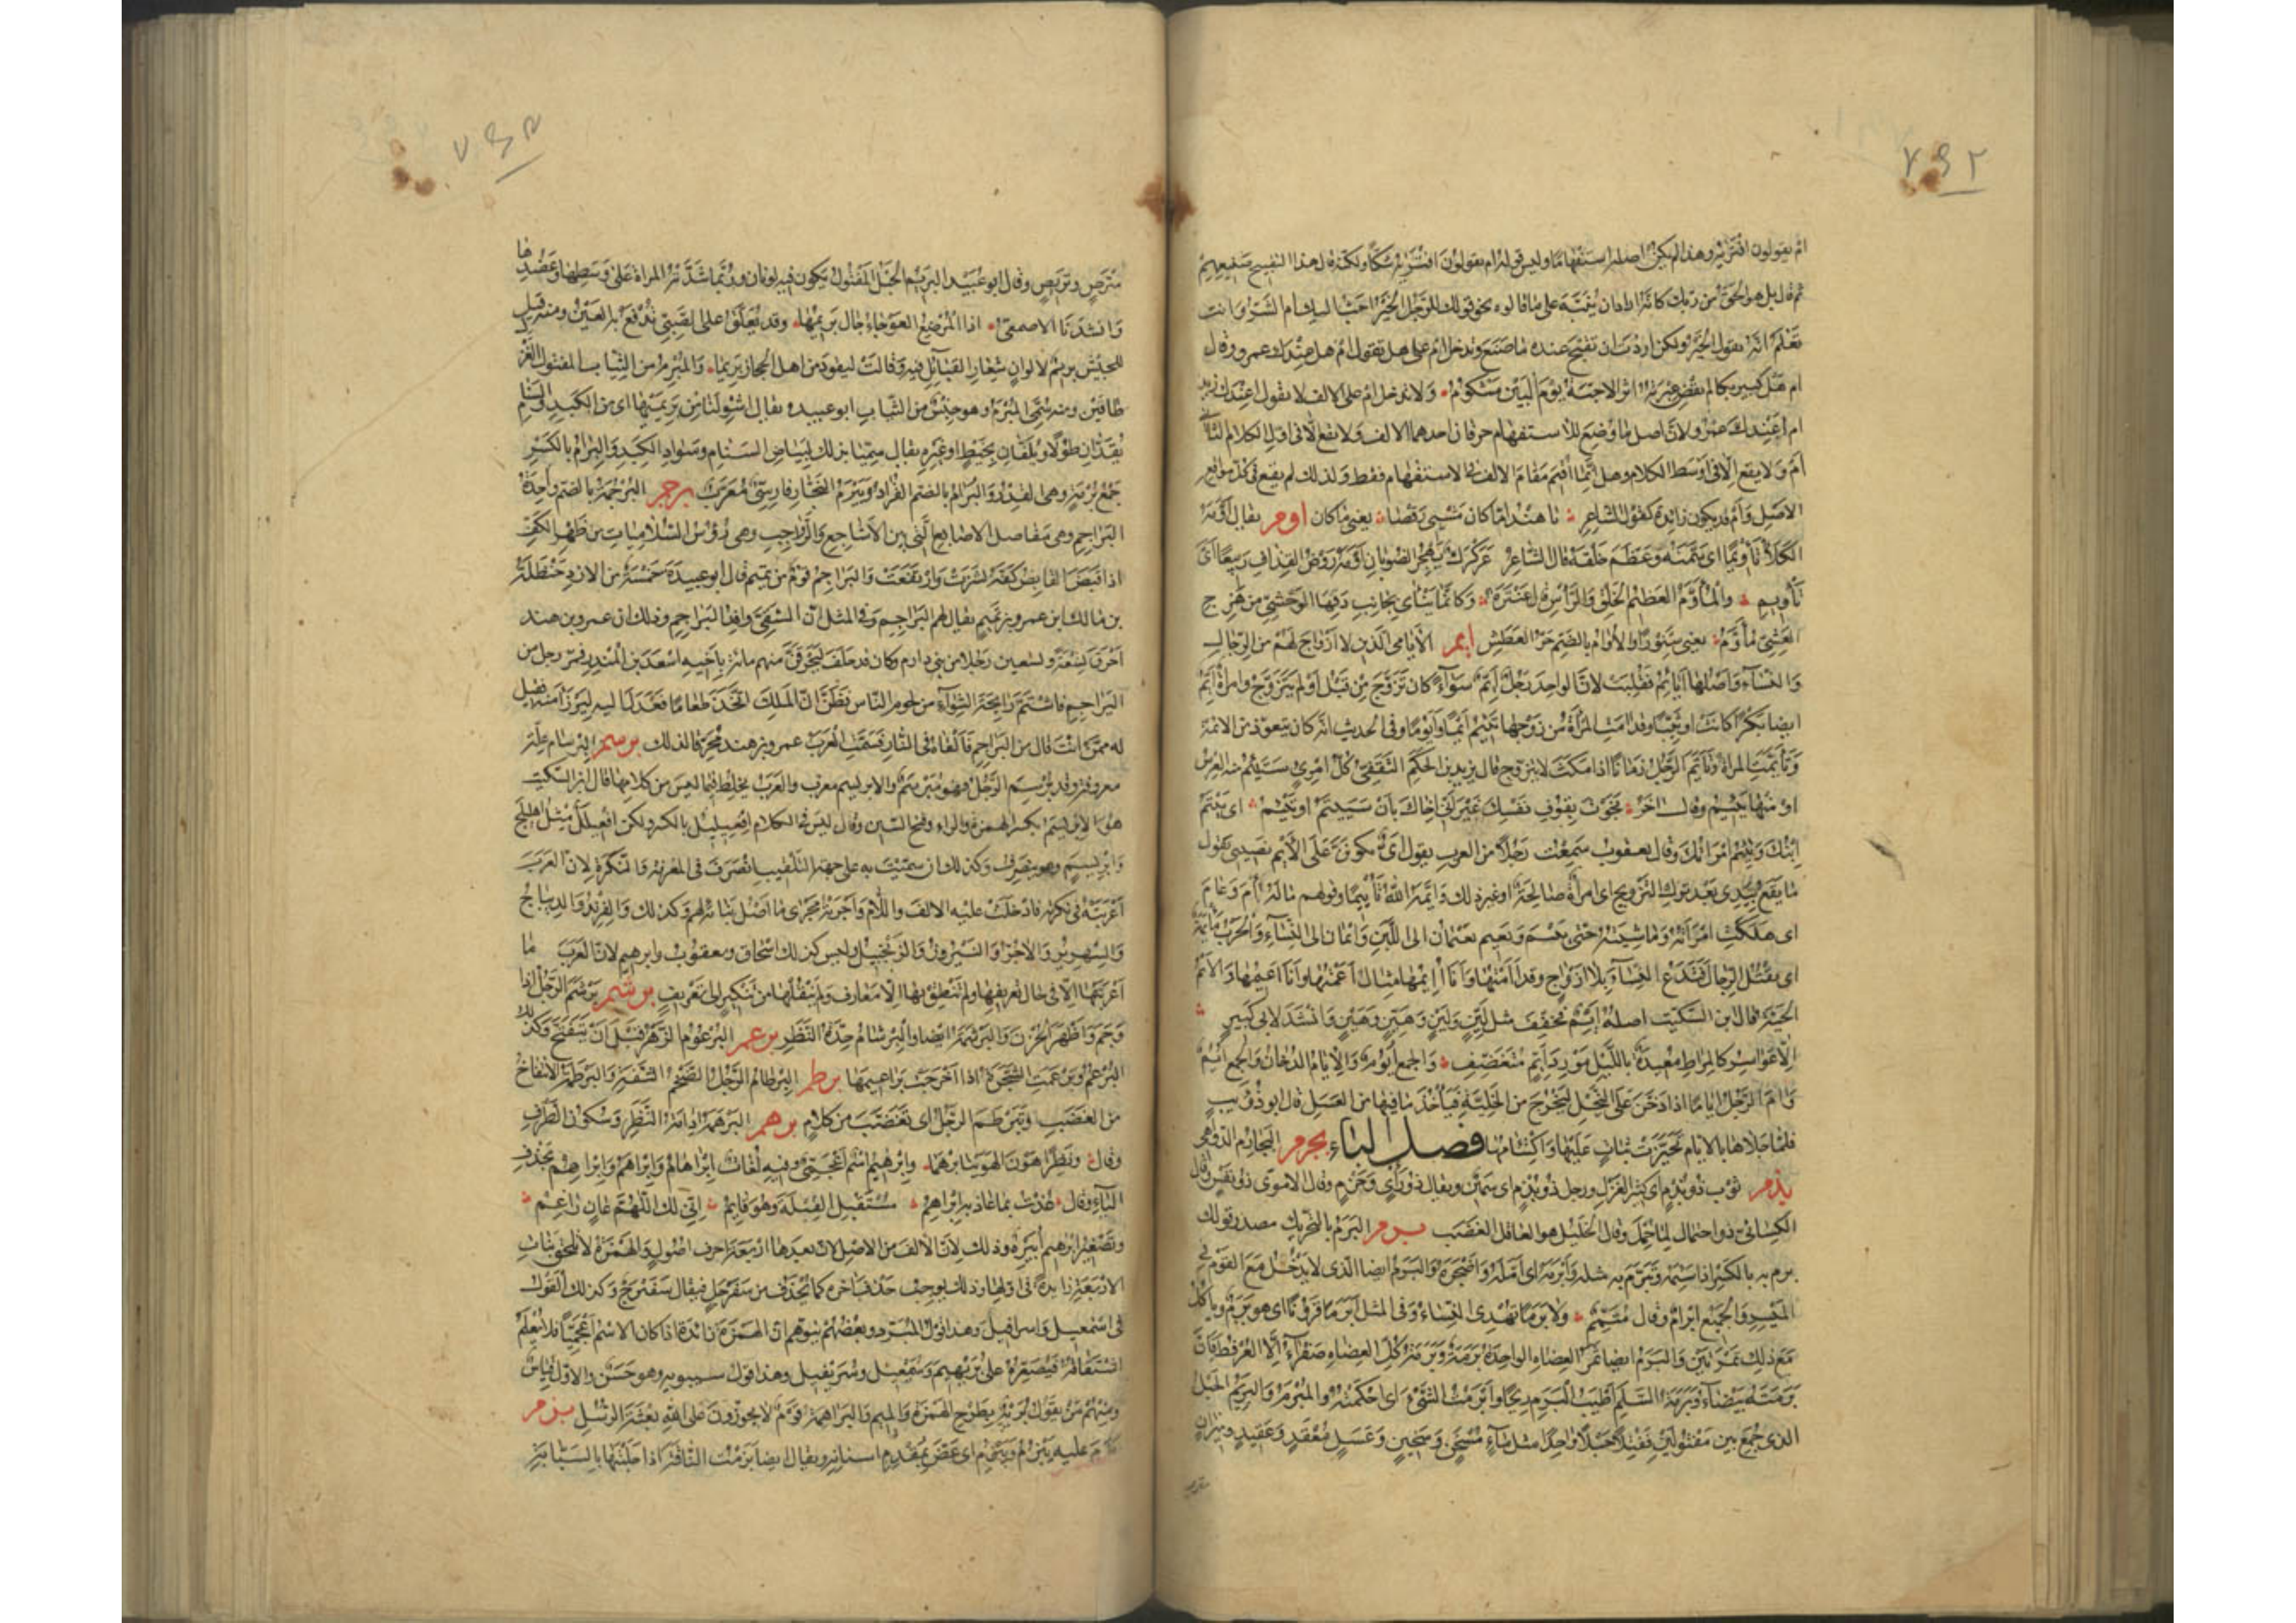 ٧٤٢
ام يقولون افتريه وهذا لم يكن اصله استفهاما وليس قوله ام يقولون افتريه شكا ولكنه قال هذا لتقبيح صنيعهم
ثم قال بل هو الحق من ربك كانه اراد ان ينبه على ما قالوه نحو قولك للرجل الخير احب اليك ام الشر وانت
تعلم انه يقول الخير ولكن اردت ان تقبح عنده ما صنع وتدخل ام على هل تقول ام هل عندك عمرو وقال
ام هل كبير بكا لم يقض عبرته اثر الاحبة يوم البين مشكوم ولا تدخل ام على الالف لا تقول اعندك زيد
ام اعندك عمرو لان اصل ما وضع للاستفهام حرفان احدهما الالف ولا تقع الا في اول الكلام الثاني
ام ولا يقع الا في اوسط الكلام وهل انما اقيم مقام الالف في الاستفهام فقط ولذلك لم يقع في كل مواقع
الاصل وام قد يكون زائدة كقول الشاعر يا هند اما كان مشيى رقصا يعني ما كان اوم يقال اومه
الكلأ تأويما اى سمنه وعظم خلقه قال الشاعر عركرك مهجر الضوبان اومه روض القذاف ربيعا اى
تأويم والمأوم العظيم الخلق والرأس قال عنترة وكانما ينأى بجانب دفها الوحشي من هزج
العشي مأوم يعني سنورا والاوام بالضم حر العطش ايم الايامى الذين لا ازواج لهم من الرجال
والنساء واصلها ايايم فقلبت لان الواحد رجل ايم سواء كان تزوج من قبل او لم يتزوج وامرأة ايم
ايضا بكرا كانت او ثيبا وقد امت المرأة من زوجها تئيم ايما وايوما وفي الحديث انه كان يتعوذ من الايمة
وتأيمت المرأة وتأيم الرجل زمانا اذا مكث لا يتزوج قال يزيد بن الحكم الثقفي كل امرئ ستئيم منه العرس
او منها يئيم وقال اخر نجوت بقوف نفسك غير اني اخال بان سييتم او تئيم اى ييتم
ابنك وتئيم امرأتك وقال يعقوب سمعت رجلا من العرب يقول اى يكونن على الايم نصيبي يقول
ما يقع بيدي بعد ترك التزويج اى امرأة صالحة او غير ذلك وايمه الله تأييما وقولهم ماله ام وعام
اى هلكت امرأته وماشيته حتى يئيم ويعيم فعيمان الى اللبن وايمان الى النساء والحرب مأيمة
اى يقتل الرجال فتدع النساء بلا ازواج وقد اأمتها وانا اايمها مثال اعمتها وانا اعيمها والايم
الحية قال ابن السكيت اصله ايم فخفف مثل لين ولين وهين وهين وانشد لابي كبير
الا عواسر كالمراط معيدة بالليل مورد ايم متغضف والجمع ايوم والايام الدخان والجمع ايم
وام الرجل اياما اذا دخن على النحل ليخرج من الخلية فيأخذ ما فيها من العسل قال ابو ذؤيب
فلما جلاها بالايام تحيزت ثبات عليها واكتئابها فصل الباء بجرم البجارم الدواهي
بذم ثوب ذو بذم اى كثير الغزل ورجل ذو بذم اى سمين ويقال ذو رأى وحزم وقال الاموي ذو نفس وقال
الكسائي ذو احتمال لما حمل وقال الخليل هو العاقل الغضب برم البرم بالتحريك مصدر قولك
برم به بالكسر اذا سئمه وتبرم به مثله وابرمه اى امله واضجره والبرم ايضا الذى لا يدخل مع القوم في
الميسر والجمع ابرام وقال متمم ولا برما تهدى النساء وفي المثل ابرما قرونا اى هو برم ويأكل
مع ذلك تمرتين والبرم ايضا ثمر العضاه الواحدة برمة وبرمة كل العضاه صفراء الا العرفط فان
برمته بيضاء وبرمة السلم اطيب البرم ريحا وابرمت الشيء اى احكمته والمبرم والبريم الحبل
الذى جمع بين مفتولين ففتلا حبلا واحدا مثل ماء مسخن وسخين وعسل معقد وعقيد وميزان
٧٤٢
مترص وتريص وقال ابو عبيد البريم الحبل المفتول يكون فيه لونان وربما شدته المراة على وسطها وعضدها
وانشدنا الاصمعي اذا المرضع العوجاء جال بريمها وقد يعلق على الصبي تدفع به العين ومنه قيل
للجيش بريم لالوان شعار القبائل فيه وقالت ليقود من اهل الحجاز بريما والمبرم من الثياب المفتول الغزل
طاقين ومنه سمي المبرم وهو جنس من الثياب ابو عبيدة يقال اشو لنا من بريميها اى من الكبد والسنام
يقدان طولا ويلفان بخيط او غيره يقال سميا بذلك لبياض السنام وسواد الكبد والبرام بالكسر
جمع برمة وهي القدر والبرام بالضم القراد وبيرم النجار فارسي معرب برجم البرجمة بالضم واحدة
البراجم وهي مفاصل الاصابع التي بين الاشاجع والرواجب وهي رؤس السلاميات من ظهر الكف
اذا قبض القابض كفه نشزت وارتفعت والبراجم قوم من تميم قال ابو عبيدة خمسة من الاود حنظلة
بن مالك ابن عمرو بن تميم يقال لهم البراجم وفي المثل ان الشقي وافد البراجم وذلك ان عمرو بن هند
احرق تسعة وتسعين رجلا من بني دارم وكان قد حلف ليحرقن منهم مائة باخيه اسعد بن المنذر فمر رجل من
البراجم فاشتم رايحة الشواء من لحوم الناس فظن ان الملك اتخذ طعاما فعدل اليه ليرزأ منه فقيل
له ممن انت قال من البراجم فالقاه في النار فسمت العرب عمرو بن هند محرقا لذلك برسم البرسام علة
معروفة وقد برسم الرجل فهو مبرسم والابريسم معرب والعرب يخلط فيما ليس من كلامها قال ابن السكيت
هو الابريسم بكسر الهمزة والراء وفتح السين وقال ليس في الكلام افعيليل بالكسر ولكن افعيلل مثل اهليلج
وابريسم وهو ينصرف وكذلك ان سميت به على جهة التلقيب انصرف في المعرفة والنكرة لان العرب
اعربته في نكرته فادخلت عليه الالف واللام واجرته مجرى ما اصل بنائه لهم وكذلك والفرند والديباج
والشهريز والاجر والنيروز والزنجبيل وليس كذلك اسحاق ويعقوب وابرهيم لان العرب ما
اعربتها الا في حال تعريفها ولم تنطق بها الا معارف ولم تنقلها من تنكير الى تعريف برشم برشم الرجل اذا
وجم واظهر الحزن والبرشمة ايضا والبرشام حدة النظر برعم البرعوم الزهر قبل ان يتفتح وكذلك
البرعم وبرعمت الشجرة اذا اخرجت براعيمها برطم البرطام الرجل الضخم الشفة والبرطمة الانتفاخ
من الغضب وتبرطم الرجل اى تغضب من كلام برهم البرهمة ادامة النظر وسكون الطرف
وقال ونظرا هون الهوينا برهما وابرهيم اسم اعجمي وفيه لغات ابراهام وابراهم وابراهم بحذف
الياء وقال عذت بما عاذ به ابراهم مستقبل القبلة وهو قايم اني لك اللهم عان راغم
وتصغير ابرهيم ابيره وذلك لان الالف من الاصل لان بعدها اربعة احرف اصول والهمزة لا تلحق بنات
الاربعة زايدة في اولها وذلك يوجب حذف اخره كما يحذف من سفرجل فيقال سفيرج وكذلك القول
في اسمعيل واسرافيل وهذا قول المبرد وبعضهم يتوهم ان الهمزة زائدة اذا كان الاسم اعجميا فلا يعلم
اشتقاقه فيصغره على بريهيم وسميعيل وسريفيل وهذا قول سيبويه وهو حسن والاول قياس
ومنهم من يقول بريه بطرح الهمزة والميم والبراهمة قوم لا يجوزون على الله بعثة الرسل بزم
بزم عليه يبزم ويبزم اى عض بمقدم اسنانه ويقال ايضا بزمت الناقة اذا حلبتها بالسبابة